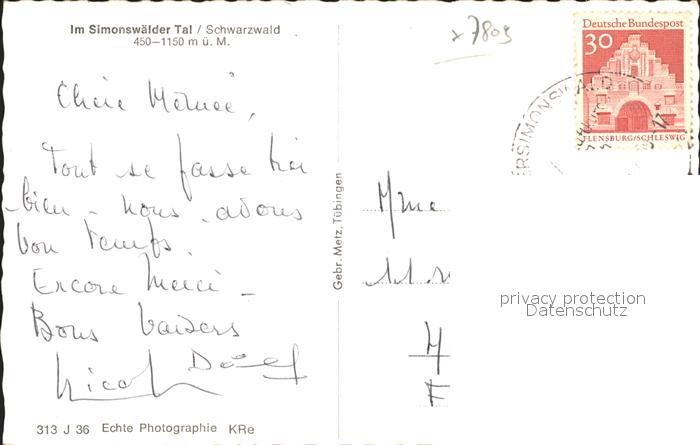 Im Simonswälder Tal / Schwarzwald
450–1150 m ü. M.
x 7809
Deutsche Bundespost
30
FLENSBURG/SCHLESWIG
ERSIMONSWALD
Chère
Tout se passe très
bien - nous avons
bon temps.
Encore merci -
Bons baisers
Gebr. Metz, Tübingen
Mme
privacy protection
Datenschutz
313 J 36 Echte Photographie KRe